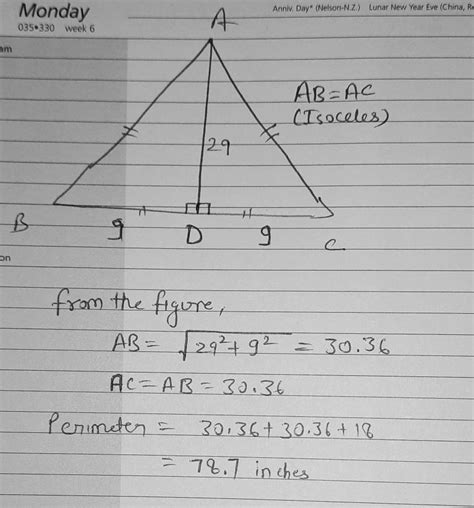 Monday
035•330 week 6
Anniv. Day* (Nelson-N.Z.) Lunar New Year Eve (China,
am
A
AB=AC
(Isoceles)
29
B 9 D 9 C
on
from the figure,
AB= √29²+9² = 30.36
AC=AB=30.36
Perimeter = 30.36+30.36+18
= 78.7 inches